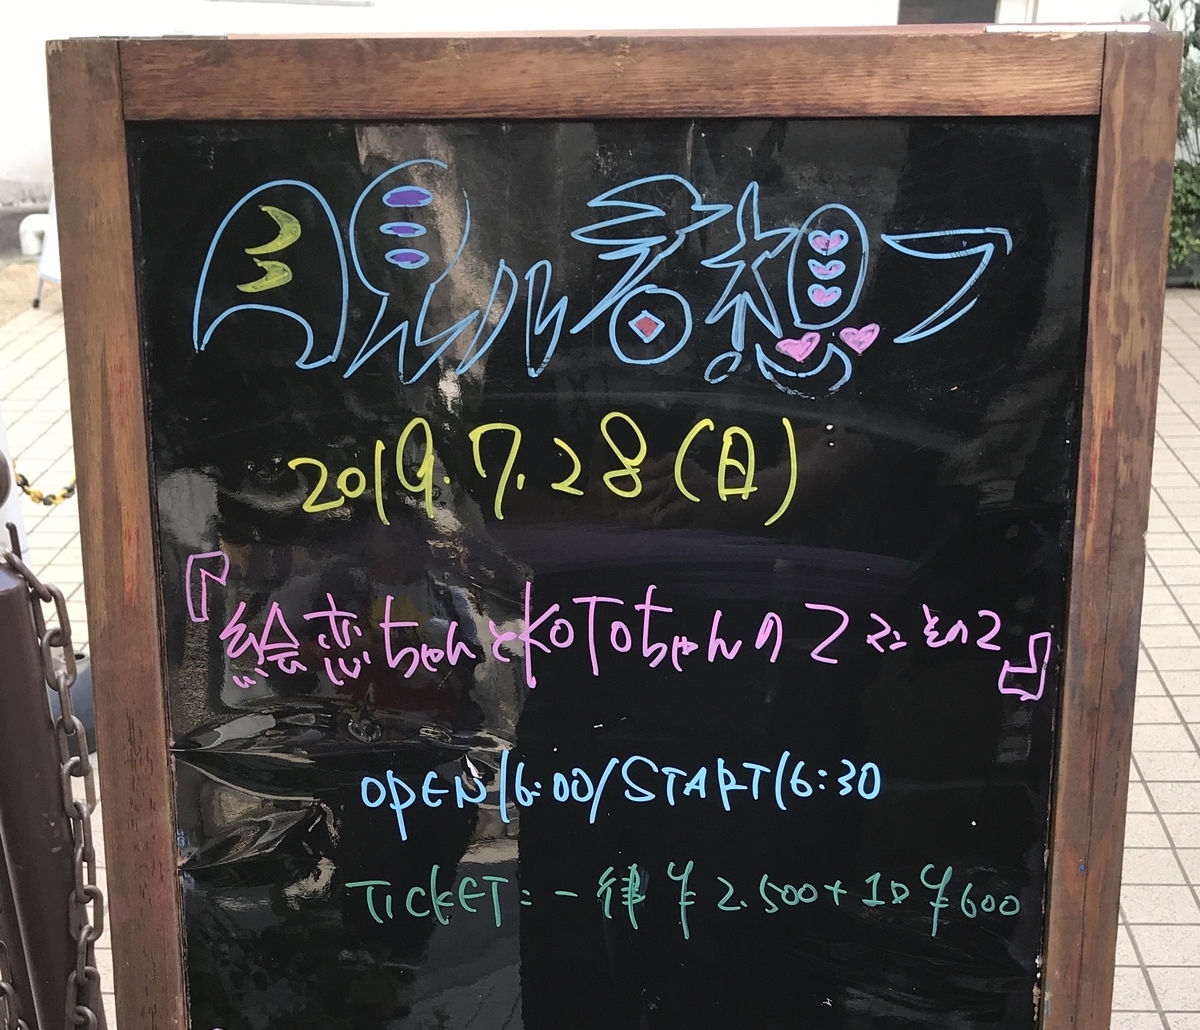 月見ル君想フ
2019.7.28(日)
『絵恋ちゃんとKOTOちゃんの2マンその2』
OPEN16:00/START16:30
TICKET:一律¥2.500+1D¥600